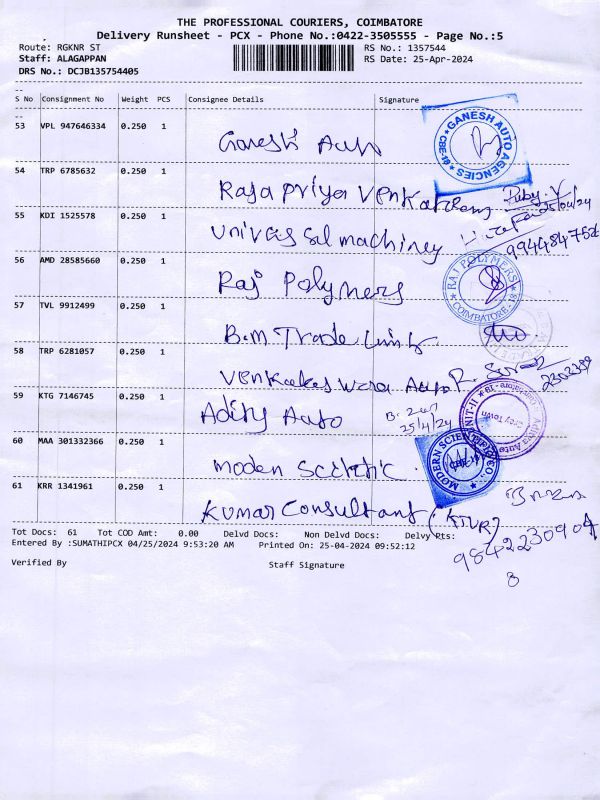 THE PROFESSIONAL COURIERS, COIMBATORE
Delivery Runsheet - PCX - Phone No.:0422-3505555 - Page No.:5
Route: RGKNR ST RS No.: 1357544
Staff: ALAGAPPAN RS Date: 25-Apr-2024
DRS No.: DCJB135754405
S No Consignment No Weight PCS Consignee Details Signature
53 VPL 947646334 0.250 1 Ganesh Auto GANESH AUTO AGENCIES CBE-18
54 TRP 6785632 0.250 1 Raja Priya Venkat Ruby. V 25/04/24
55 KDI 1525578 0.250 1 Univassal machiney 9944847525
56 AMD 28585660 0.250 1 Raj Polymers RAJ POLYMERS COIMBATORE-18
57 TVL 9912499 0.250 1 B.M Trade Links
58 TRP 6281057 0.250 1 Venkateswara Auto 2302389
59 KTG 7146745 0.250 1 Adithy Auto 25/4/24 UNIT-II
60 MAA 301332366 0.250 1 moden Scientic MODERN SCIENTIFIC
61 KRR 1341961 0.250 1 Kumar Consultant (KTVR)
9842230904
8
Tot Docs: 61 Tot COD Amt: 0.00 Delvd Docs: Non Delvd Docs: Delvy Pts:
Entered By :SUMATHIPCX 04/25/2024 9:53:20 AM Printed On: 25-04-2024 09:52:12
Verified By Staff Signature